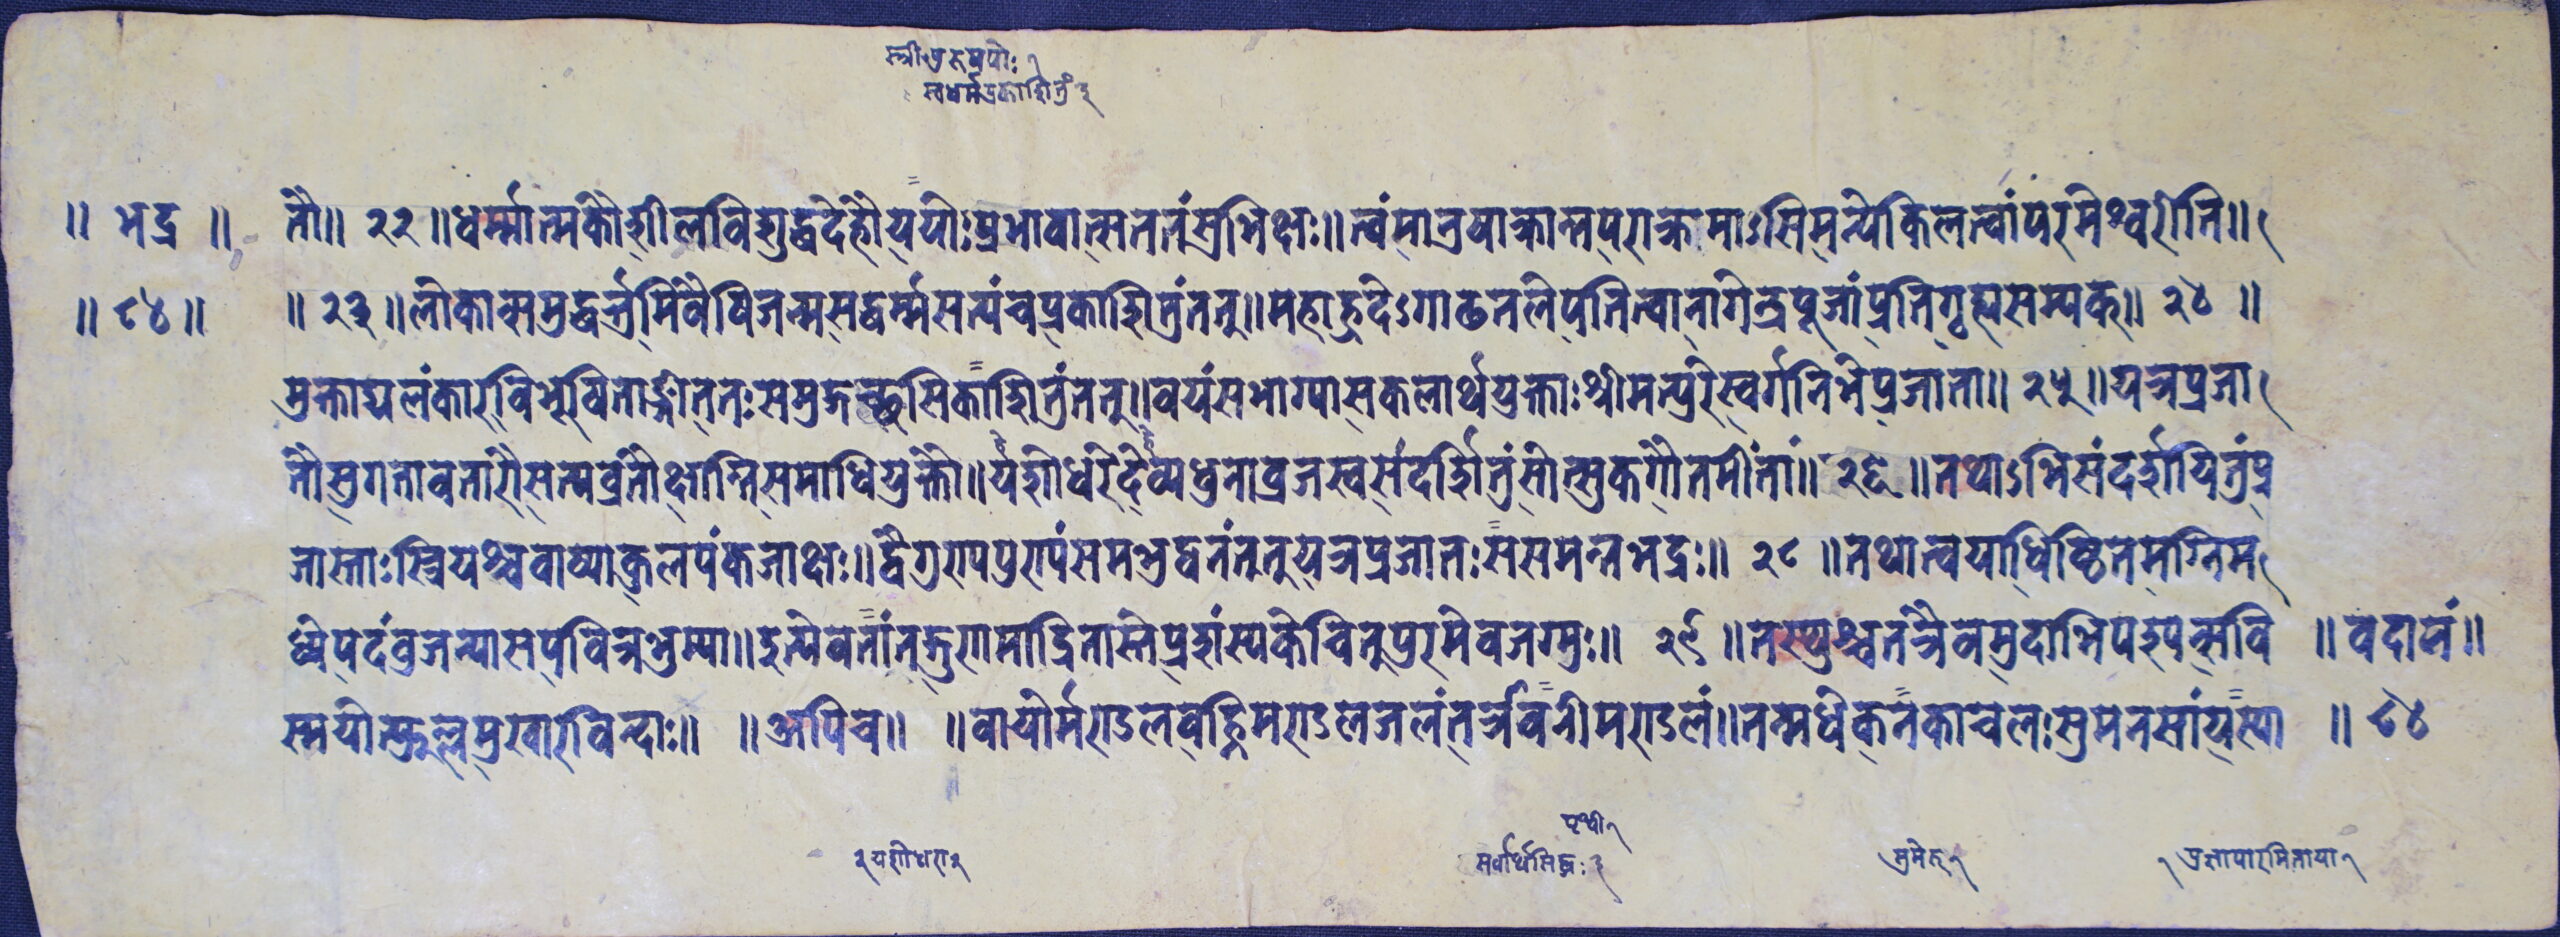 स्त्रीपुरूषयोः १
स्वधर्मप्रकाशितुं ३
॥ भद्र ॥ तौ॥ २२ ॥धर्म्मात्मकौशीलविशुद्धदेहौययोःप्रभावात्सततंसुभिक्षः॥त्वंमातृयाक्रान्तपराक्रमाऽसिमन्येकिलत्वांपरमेश्वरीति॥
॥ ८४ ॥ ॥ २३ ॥लोकान्समुद्धर्त्तुमिवैषिजन्मसद्धर्म्मसत्यंचप्रकाशितुंननु॥महाह्रदेऽगाढतलेपतित्वानागेन्द्रपूजांप्रतिगृह्यसम्यक्॥ २४ ॥
मुक्ताद्यलंकारविभूषिताङ्गीततःसमुद्गच्छसिकाशितुंननु॥वयंसभाग्यासकलार्थयुक्ताःश्रीमत्पुरीस्वर्गनिभेप्रजाता॥ २५ ॥यत्रप्रजा
तौसुगतावतारौसत्यव्रतौक्षान्तिसमाधियुक्तौ॥यशोधरेदेव्यधुनाव्रजस्वसंदर्शितुंसोत्सुकगौतमींतां॥ २६ ॥तथाऽभिसंदर्शयितुंप्र
जास्ताःस्त्रियश्चवाष्पाकुलपंकजाक्षः॥द्वैगुण्यपुण्यंसमभुद्घनंनुनुयत्रप्रजातःससमन्तभद्रः॥ २८ ॥तथात्वयाधिष्ठितमग्निम
ध्येपदंव्रजन्यासपवित्रभुम्या॥इत्येवतांनद्गुणमाद्रितास्तेप्रशंस्यकेचित्तुपुरमेवजग्मुः॥ २९ ॥तस्थुश्चतत्रैवमुदाभिपश्यन्सवि ॥ वदानं॥
स्मयोत्फुल्लमुखारविन्दाः॥ ॥अपिच॥ ॥वायोर्मण्डलवह्निमण्डलजलंतत्रवनीमण्डलं॥तन्मध्येकनकाचलःसुमनसांयस्या ॥ ८४
२ यशोधरा२
पृथ्वी१
सर्वार्थसिद्धः ३
सुमेरु १
१ प्रज्ञापारमिताया१